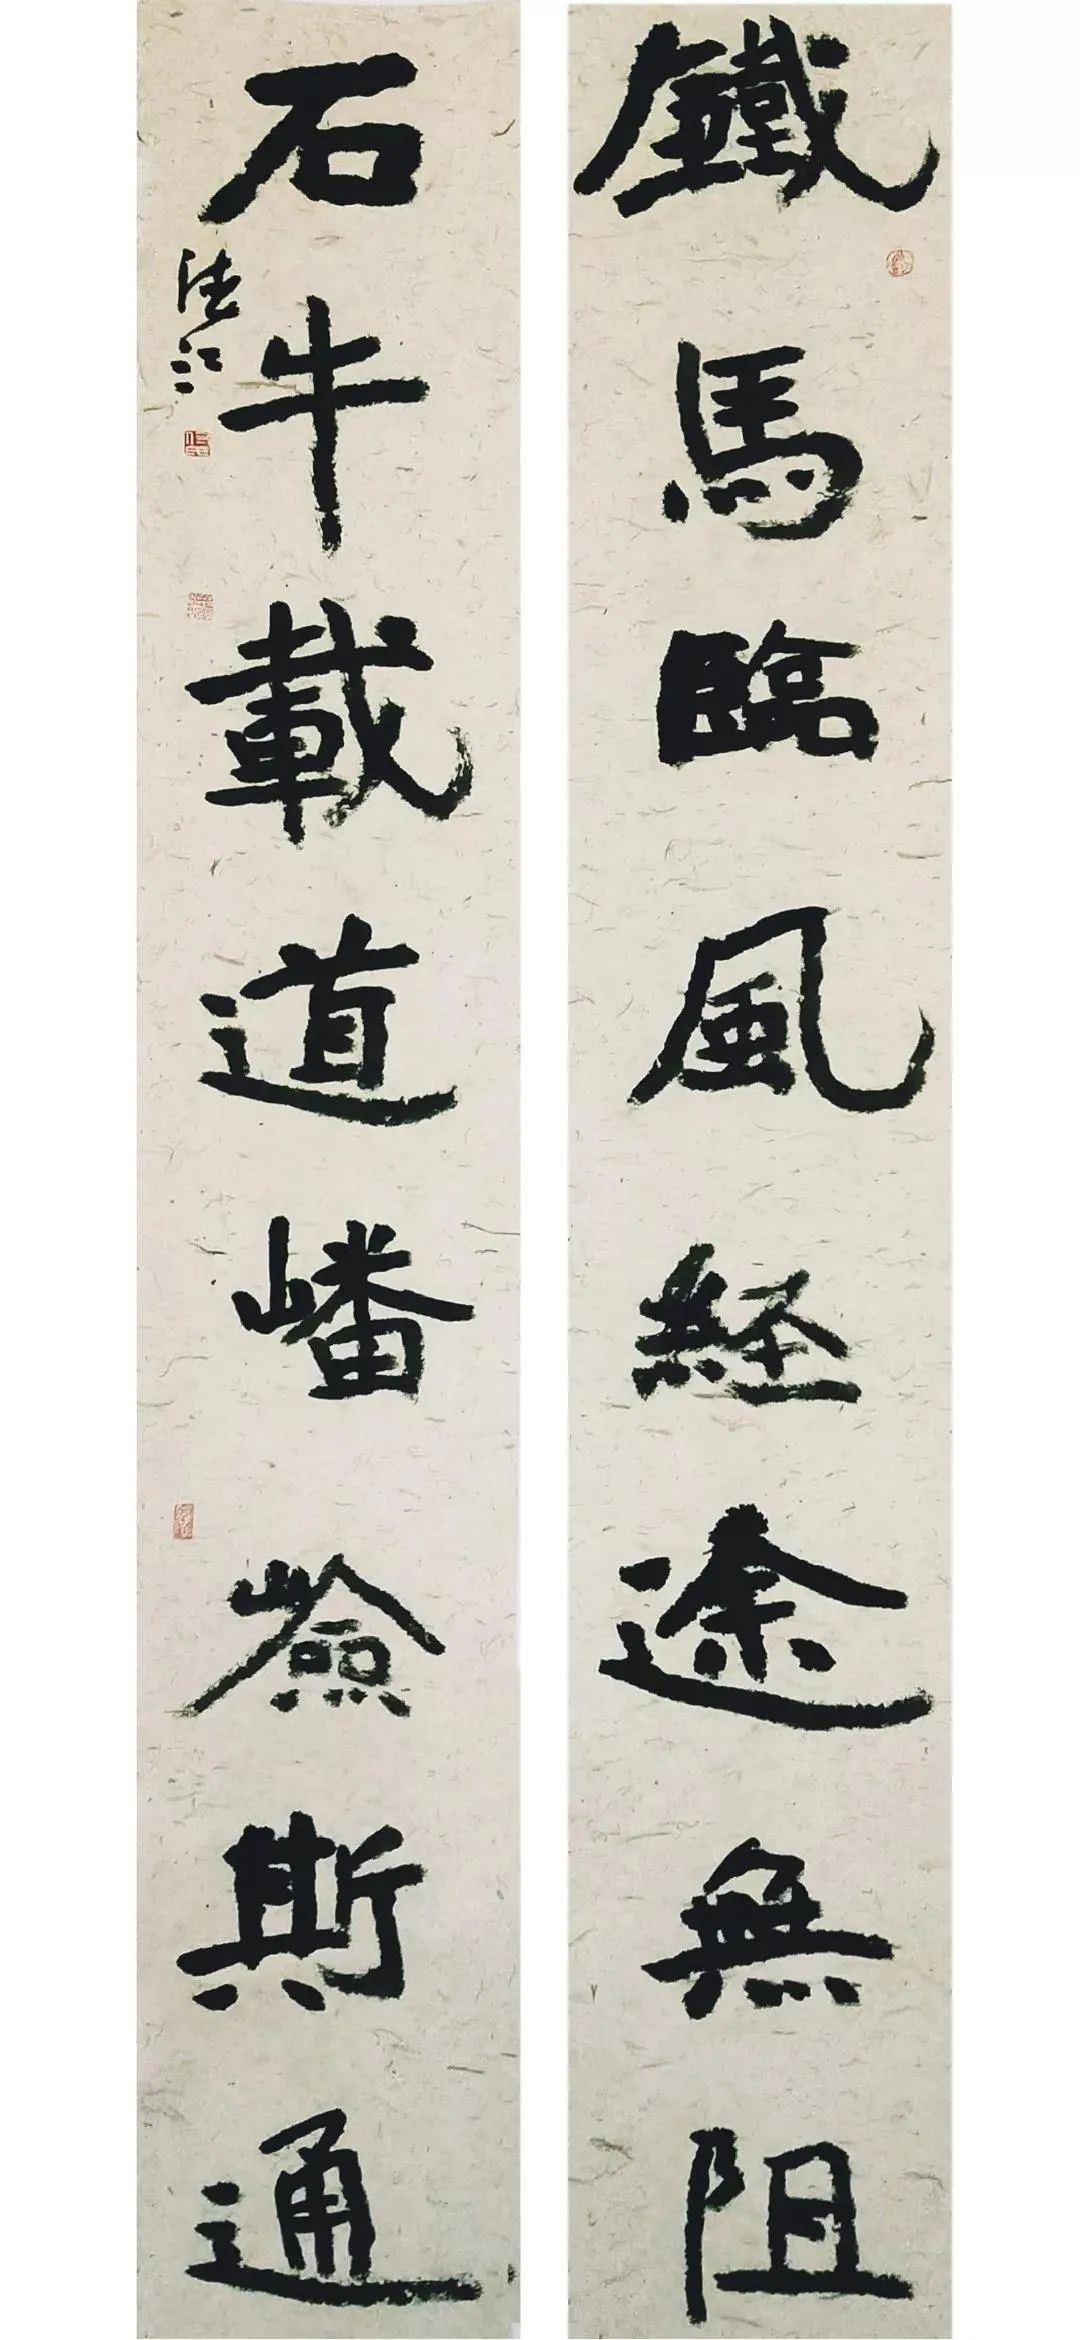 鐵馬臨風經途無阻
石牛載道嶓嶮斯通
德江